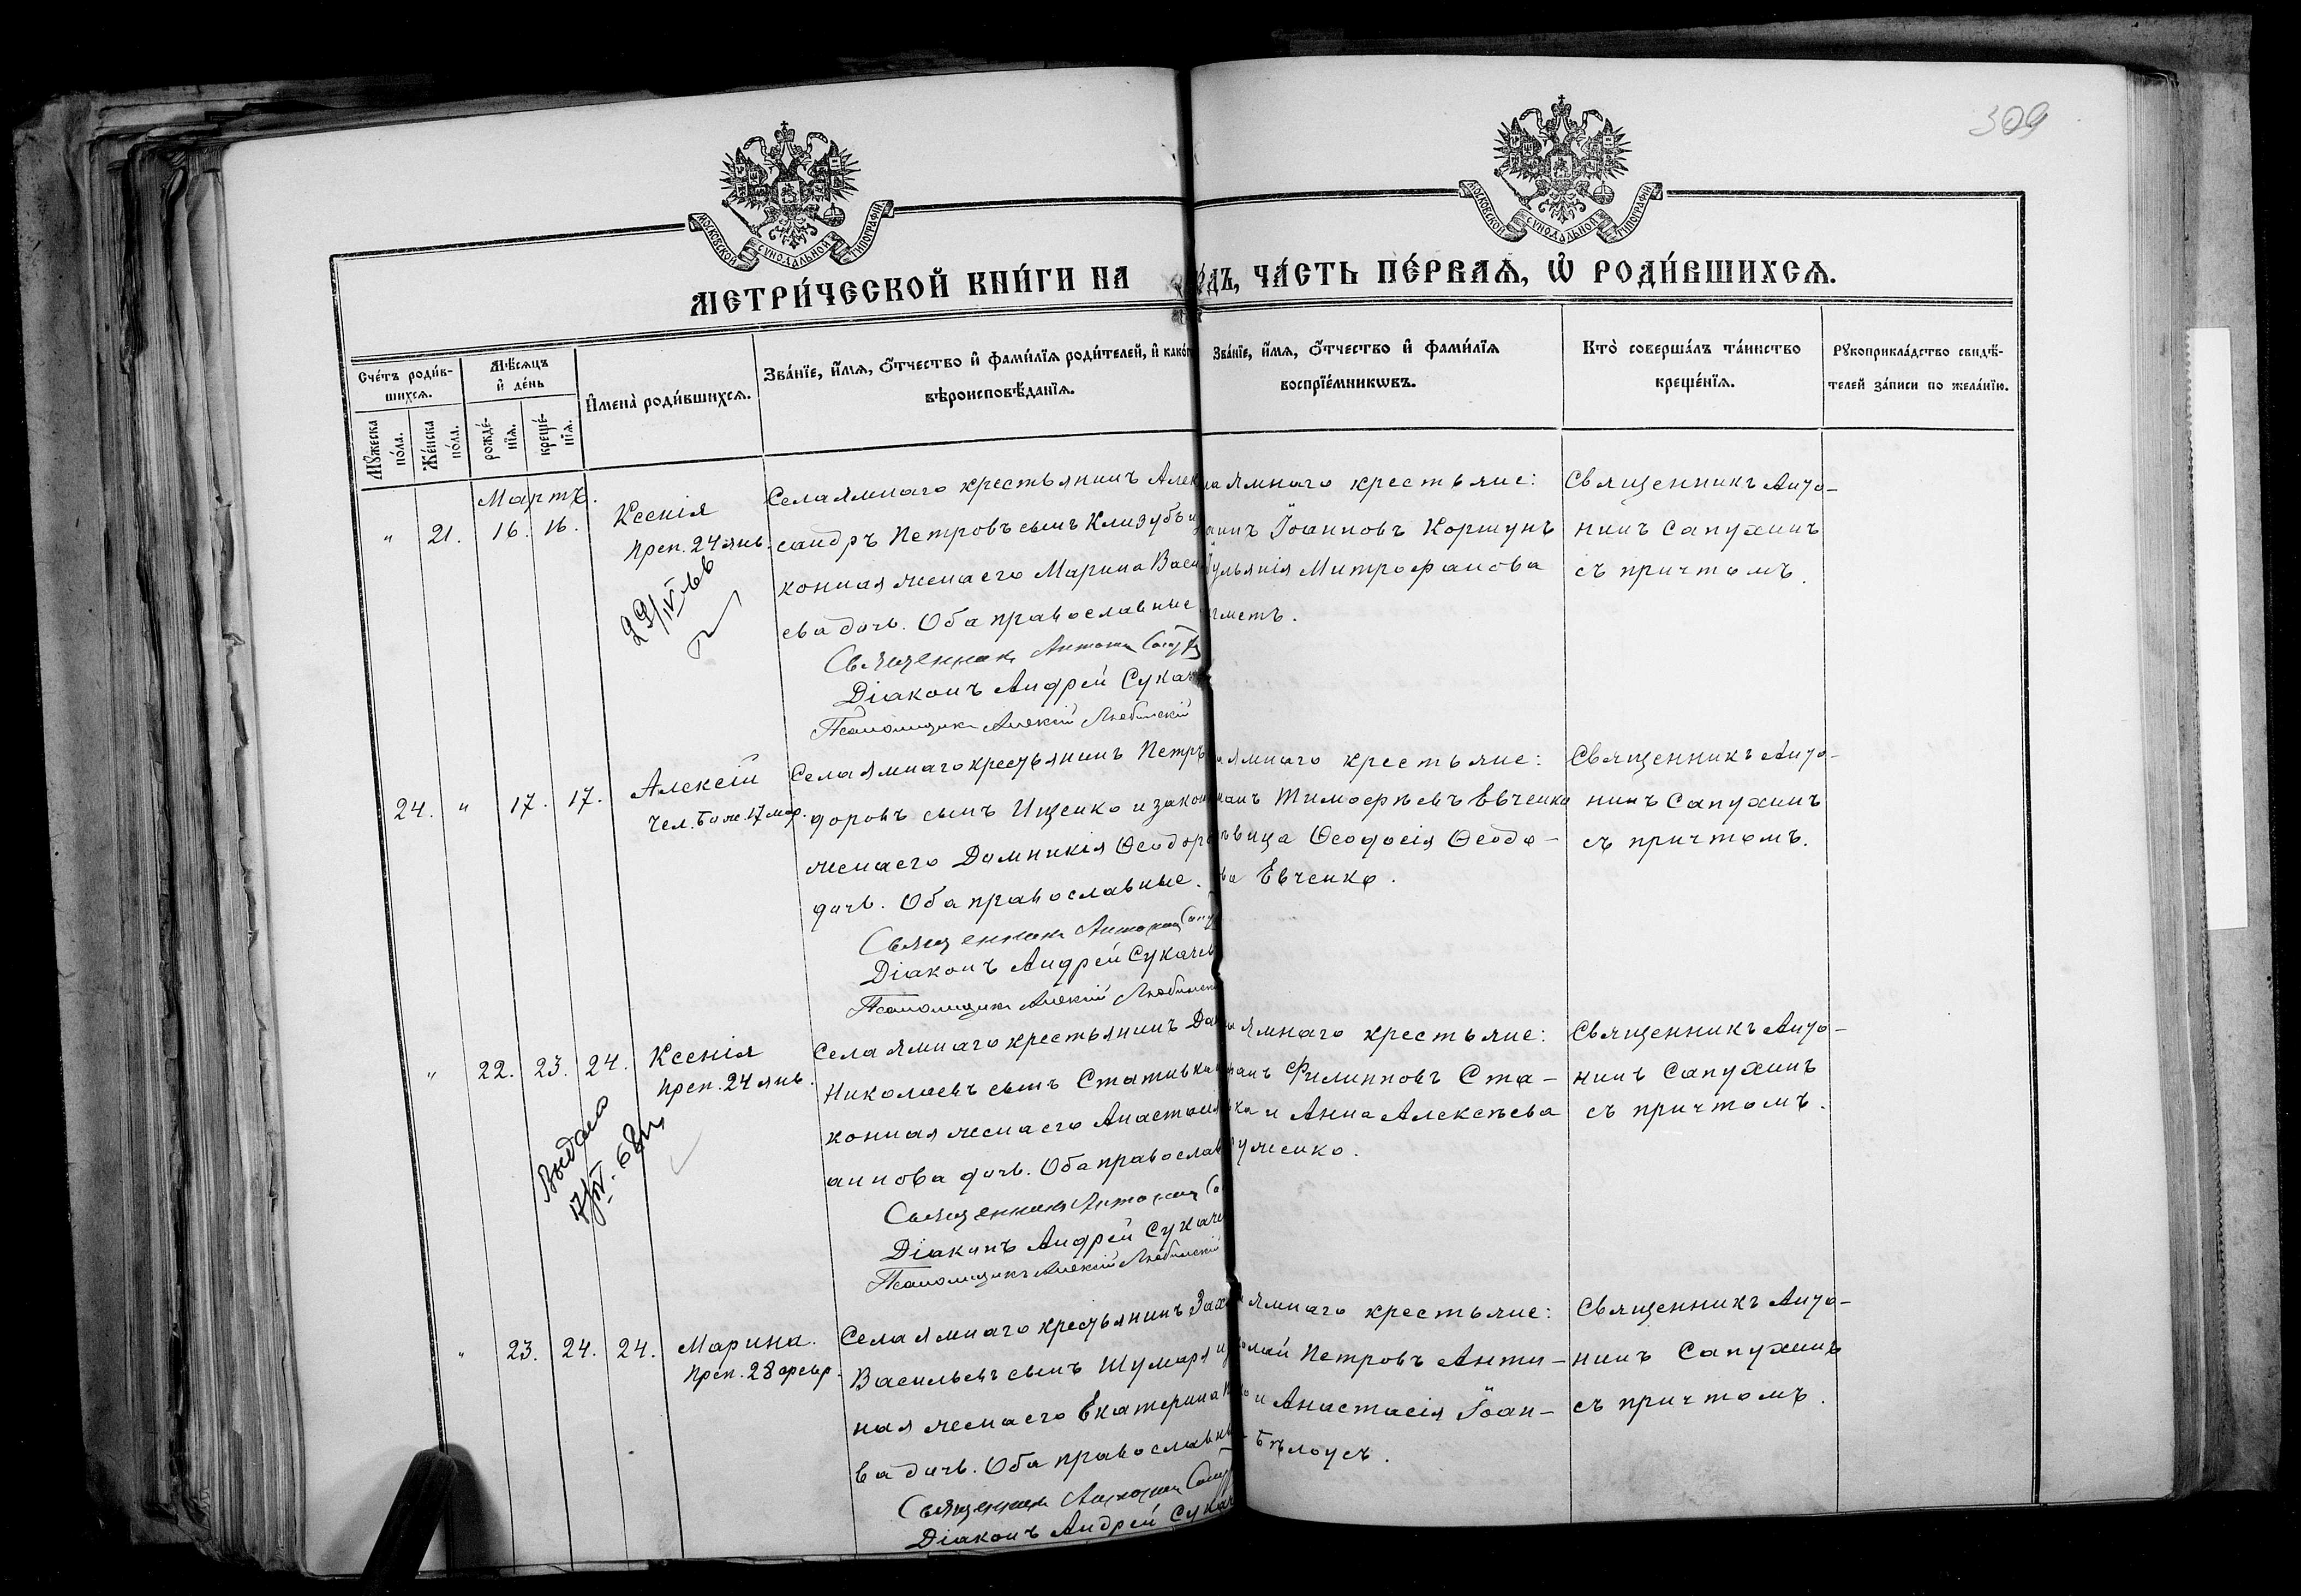 309
МОСКОВСКОЙ СѴНОДАЛЬНОЙ ТИПОГРАФІИ
МОСКОВСКОЙ СѴНОДАЛЬНОЙ ТИПОГРАФІИ
МЕТРИ́ЧЕСКОЙ КНИ́ГИ НА
ДЪ, ЧА́СТЬ ПЕ́РВАЯ, Ѡ҆ РОДИ́ВШИХСЯ.
Сче́тъ роди́в-
шихся.
Мѣ́сяцъ
и де́нь
Мꙋ́жеска
по́ла.
Же́нска
по́ла.
рожде́-
нїя.
креще́-
нїя.
Имена̀ роди́вшихся.
Зва́нїе, и́мя, ѻ҆́тчество и фами́лїя роди́телей, и како́г
вѣроисповѣ́данїя.
Зва́нїе, и́мя, ѻ҆́тчество и фами́лїя
воспрїе́мникωвъ.
Кто̀ соверша́лъ та́инство
креще́нїя.
Рꙋкоприкла́дство свидѣ́-
телей за́писи по жела́нїю.
Мартъ.
" 21. 16. 16. Ксенія
преп. 24 янв.
29/IV 66
Села Ямнаго крестьянинъ Алек
сандръ Петровъ сынъ Клизубъ и
конная жена его Марина Васи
ева дочь. Оба православные
Священник Антонин
Діаконъ Андрей Сукач
Псаломщикъ Алексій Любинскій
а Ямнаго крестьяне:
аинъ Іоанновъ Коршунъ
Іульянія Митрофанова
гметъ.
Священникъ Анто-
нинъ Сапухинъ
съ причтомъ.
24. " 17. 17. Алексій
чел. Бож. 17 мар.
Села Ямнаго крестьянинъ Петръ
доровъ сынъ Ищенко и закон
жена его Домникія Ѳеодоро
дочь. Оба православные.
Священник Антонин
Діаконъ Андрей Сукачев
Псаломщикъ Алексій Любинскі
а Ямнаго крестьяне:
анъ Тимофѣевъ Евченко
вица Ѳеодосія Ѳеодо-
ва Евченко.
Священникъ Анто-
нинъ Сапухинъ
съ причтомъ.
" 22. 23. 24. Ксенія
преп. 24 янв.
Выдано
68
Села Ямнаго крестьянинъ Да
Николаевъ сынъ Стативка и
конная жена его Анастасія
аннова дочь. Оба православ
Священник Антонин
Діаконъ Андрей Сукаче
Псаломщикъ Алексій Любинскій
Ямнаго крестьяне:
анъ Филипповъ Ста-
ка и Анна Алексѣева
уменко.
Священникъ Анто-
нинъ Сапухинъ
съ причтомъ.
" 23. 24. 24. Марина.
Преп. 28 февр.
Села Ямнаго крестьянинъ Заха
Васильевъ сынъ Шумаря и
ная жена его Екатерина
ва дочь. Оба православны
Священник Антонин
Діаконъ Андрей Сукач
Ямнаго крестьяне:
олай Петровъ Анти-
о и Анастасія Іоан-
Бѣлоусъ.
Священникъ Анто-
нинъ Сапухинъ
съ причтомъ.